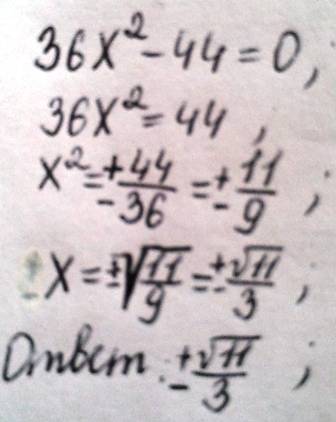 36x² - 44 = 0,
36x² = 44,
x² = ± 44/36 = ± 11/9;
x = ±√(11/9) = ± √11/3;
Ответ: ± √11/3;